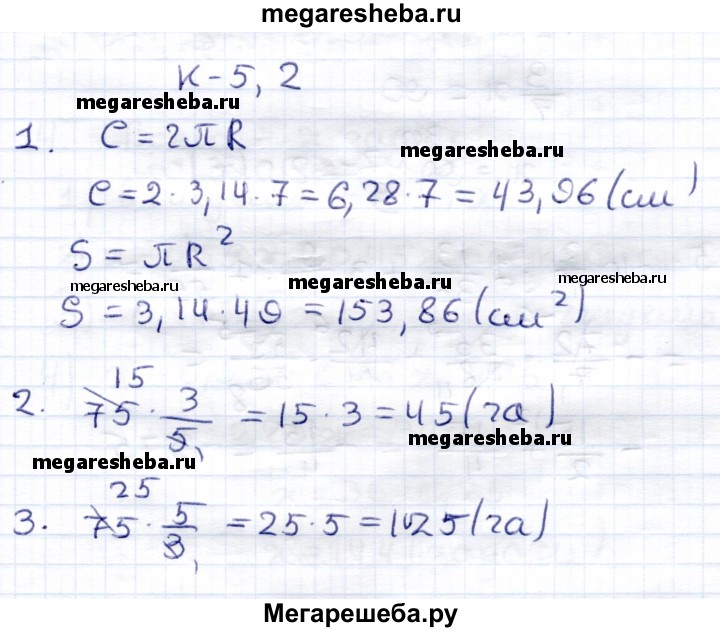 megaresheba.ru
К-5, 2
megaresheba.ru
1. C = 2πR
megaresheba.ru
C = 2 · 3,14 · 7 = 6,28 · 7 = 43,96 (см)
S = πR²
megaresheba.ru megaresheba.ru megaresheba.ru
S = 3,14 · 49 = 153,86 (см²)
15
2. 75 · 3/5 1 = 15 · 3 = 45 (га)
megaresheba.ru
megaresheba.ru
25
3. 75 · 5/3 1 = 25 · 5 = 125 (га)
Мегарешеба.ру